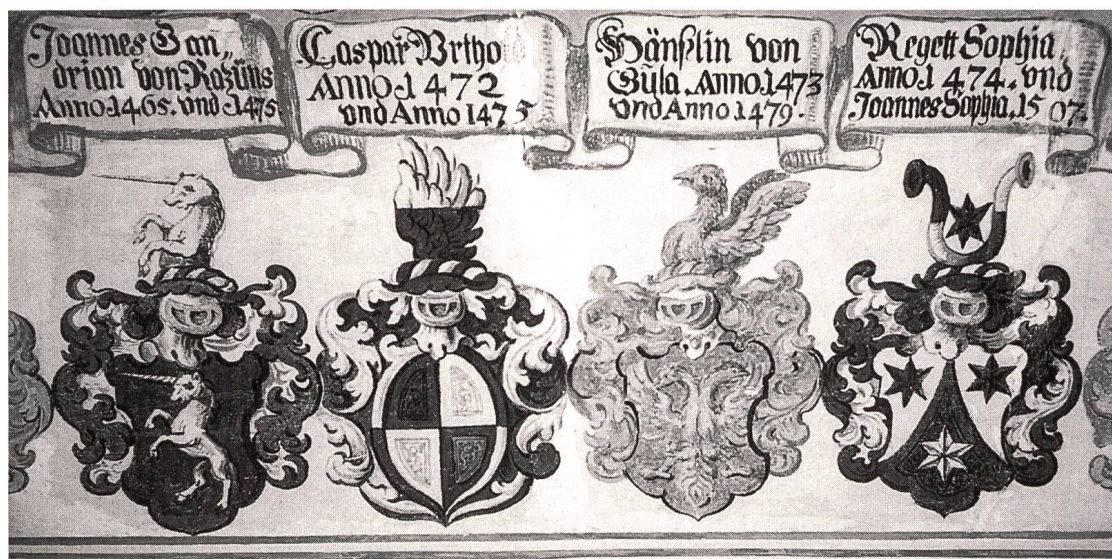 Joannes Gan„
drian von Razüns
Anno.1465. vnd .1475.
Caspar Vrtho
ANNO.1472
vnd Anno 1475
Hänßlin von
Gÿla. Anno.1473
vnd Anno.1479.
Regett Sophia.
Anno.1474. vnd
Joannes Sophia.1507.